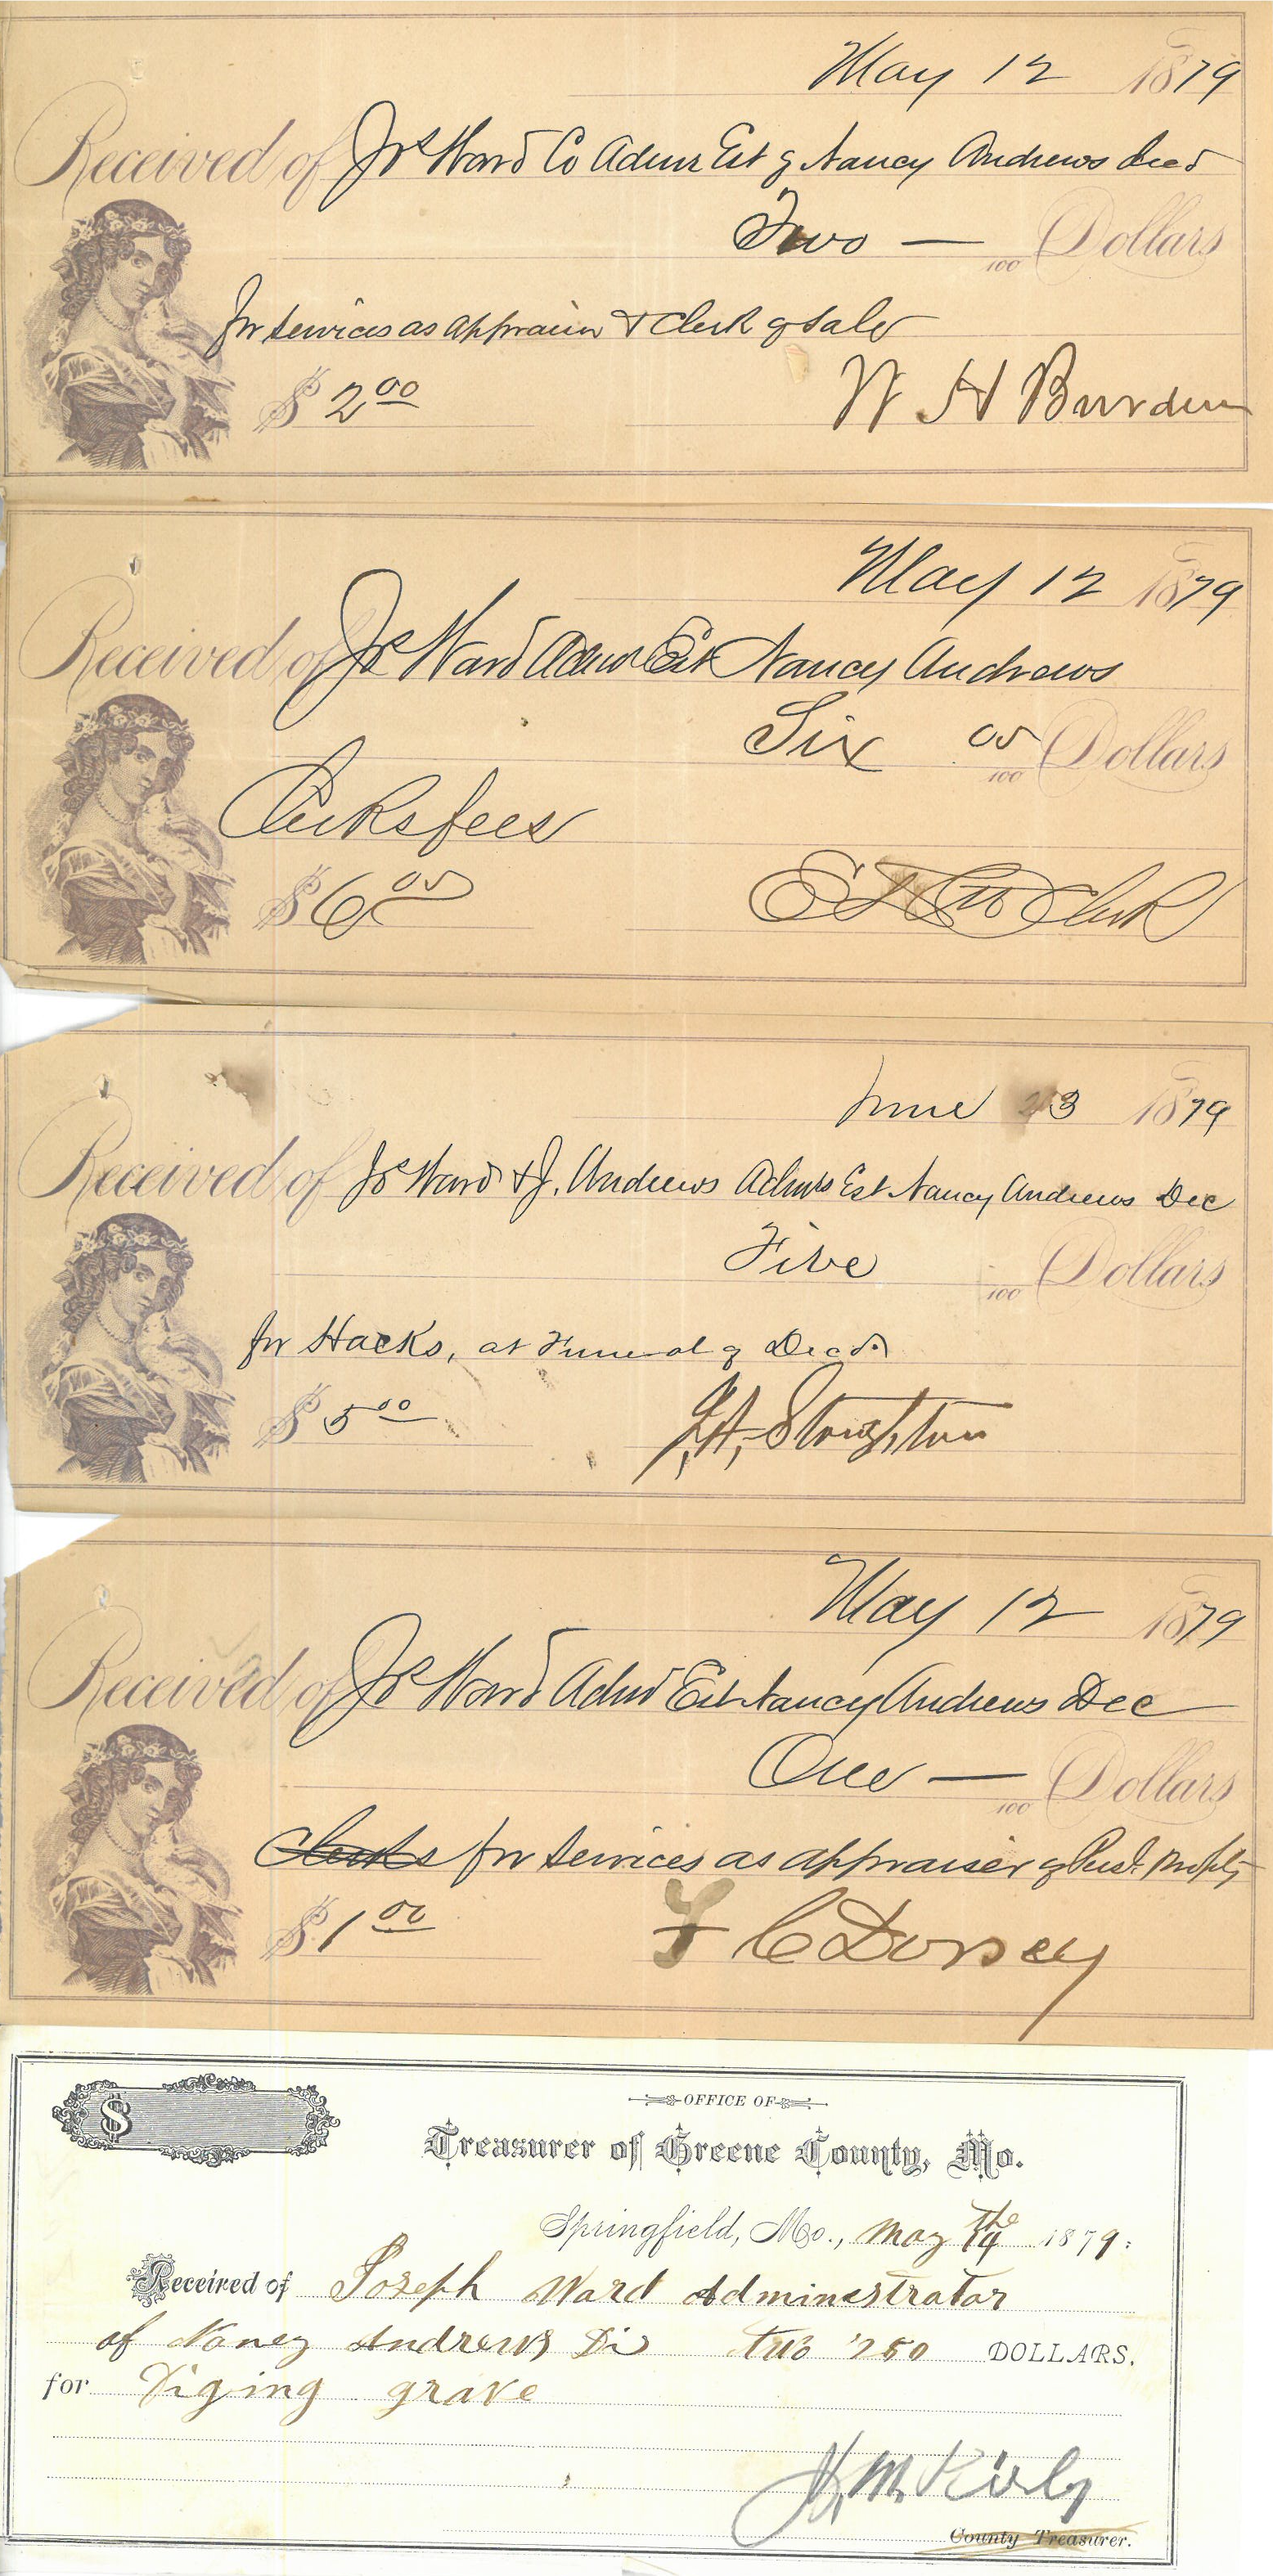 May 12 1879
Received of Jos Ward Co Admr Est of Nancy Andrews Decd
Two — /100 Dollars
for services as appraiser & Clerk of sale
$ 2 00
W H Burden
May 12 1879
Received of Jos Ward Admr Est Nancy Andrews
Six 00/100 Dollars
Clerks fees
$ 6 00
Clerk
June 23 1879
Received of Jos Ward & J. Andrews Admrs Est Nancy Andrews Dec
Five /100 Dollars
for Hacks, at Funeral of Decd
$ 5 00
Stoughton
May 12 1879
Received of Jos Ward Admr Est Nancy Andrews Dec
One — /100 Dollars
Clerks for services as appraiser of
$ 1 00
C Dorsey
$
OFFICE OF
Treasurer of Greene County, Mo.
Springfield, Mo., May the 14 1879.
Received of Joseph Ward Administrator
of Nancy Andrews 250 DOLLARS.
for Diging grave
M. Kirby
County Treasurer.